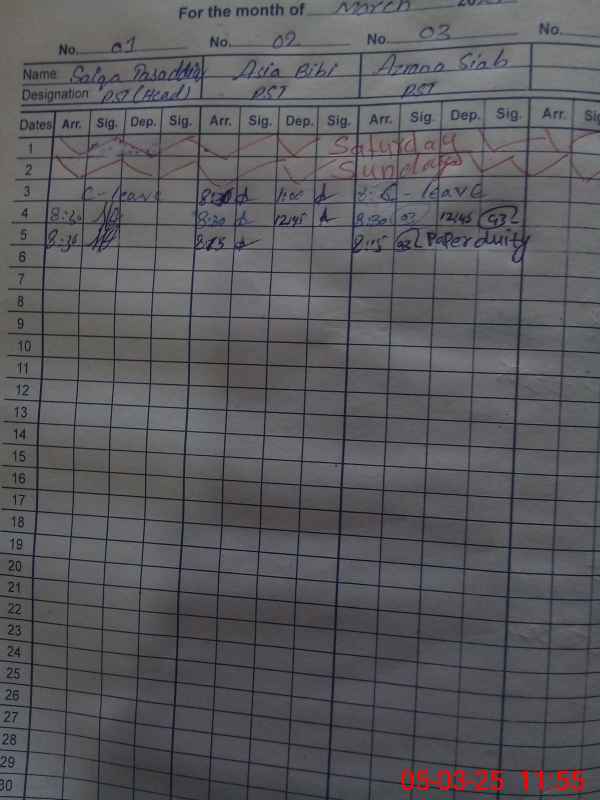 For the month of March
No. 01 No. 02 No. 03 No.
Name: Saiqa Asia Bibi Siab
Designation: PST (Head) PST PST
Dates Arr. Sig. Dep. Sig. Arr. Sig. Dep. Sig. Arr. Sig. Dep. Sig. Arr. Sig.
1 Saturday
2 Sunday
3 C-leave 8:30 1:00 C-leave
4 8:30 8:30 12:45 8:30 12:45
5 8:30 8:15 8:15 Paper duity
6
7
8
9
10
11
12
13
14
15
16
17
18
19
20
21
22
23
24
25
26
27
28
29
30
05-03-25 11:55